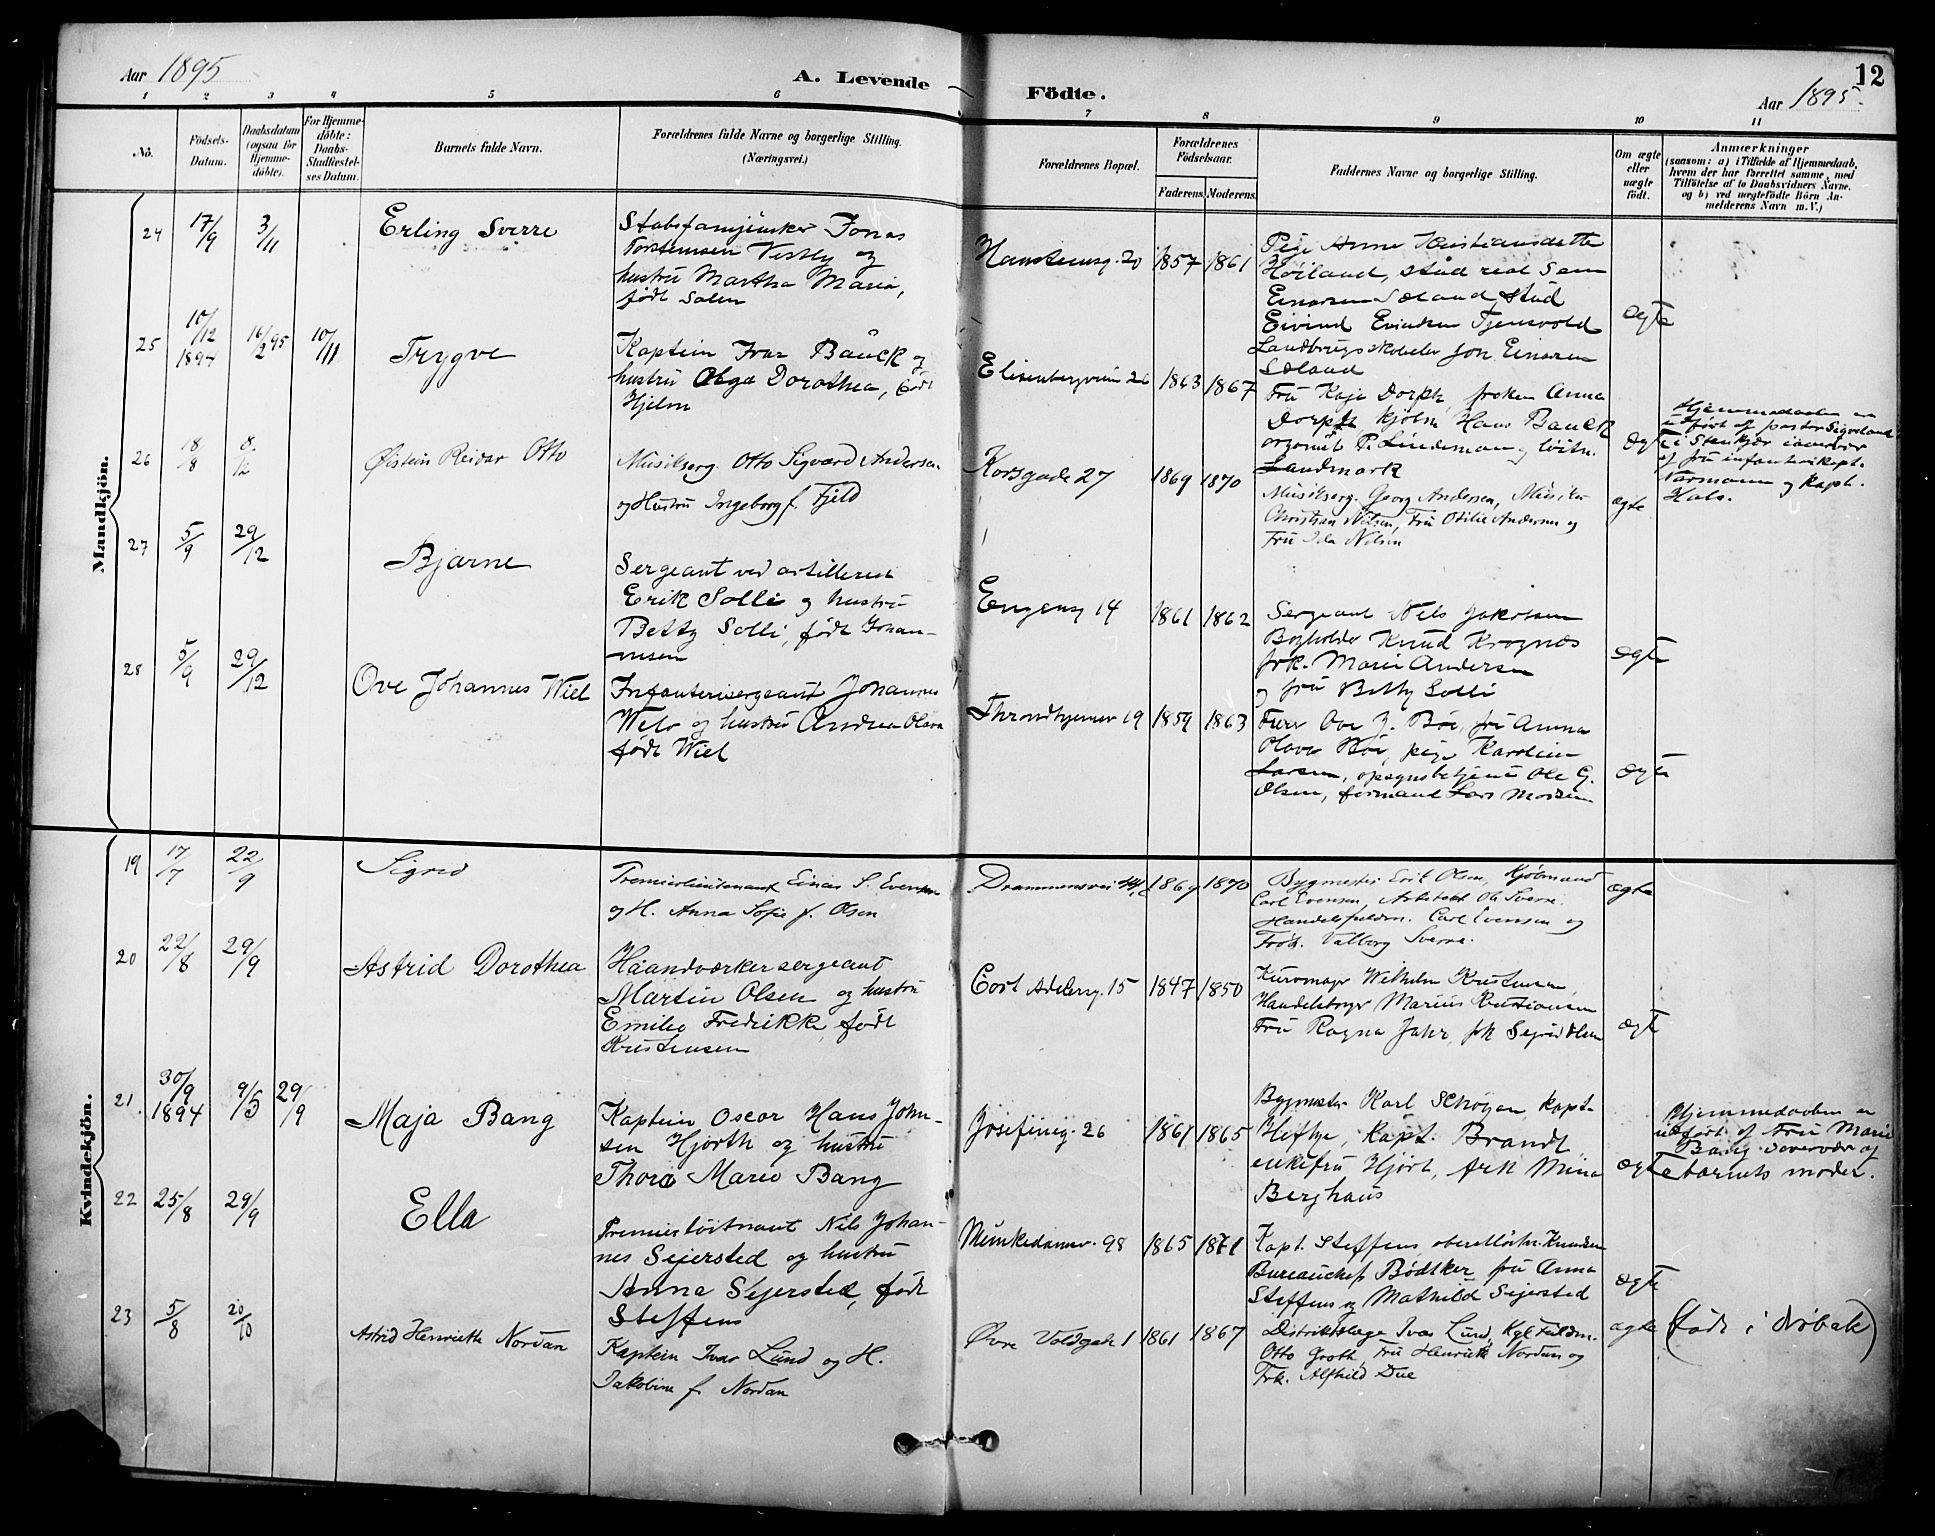 Aar 1895 A. Levende
Födte. Aar 1895. 12
1 2 3 4 5 6 7 8 9 10 11
No. Födsels-Datum. Daabsdatum (ogsaa for Hjemme-döbte). For Hjemme-döbte: Daabs-Stadfæstel-ses Datum. Barnets fulde Navn. Forældrenes fulde Navne og borgerlige Stilling. (Næringsvei.) Forældrenes Bopæl. Forældrenes Födselsaar. Faderens. Moderens. Faddernes Navne og borgerlige Stilling. Om ægte eller uægte födt. Anmærkninger (saasom: a) i Tilfælde af Hjemmedaab, hvem der har forrettet samme, med Tilföielse af to Daabsvidners Navne, og b) ved uægtefödte Börn An-melderens Navn m.V.)
Mandkjön.
24 17/9 3/11 Erling Sverre
Stabsfanejunker Jonas
Torstensen Vestby og
hustru Martha Maria,
født Solem
Hanstensg. 20 1857 1861
Pige Anne Kristiansdatter
Høiland, stud real Sem
Einarsen Sæland, stud
Eivind Evindsen Tjensvold
Landbrugsskolelev Jon Einarsen
Sæland
ægte
25 10/12 1894 16/2 95 10/11 Trygve
Kaptein Ivar Bauck og
hustru Olga Dorothea, født
Hjelm
Elisenbergveien 26 1863 1867
Fru Kaja Dorph, frøken Anna
Dorph, kjøbm Hans Bauck
organist P. Lindeman og løitn.
Landmark
ægte
Hjemmedaaben er
udført af pastor Sigveland
i Stenkjær
af fru infanterikapt.
Normann og kapt.
Hals.
26 18/8 8/12 Øistein Reidar Otto
Musikserg. Otto Sigvard Andersen
og Hustru Ingeborg f. Fjeld
Korsgade 27 1869 1870
Musikserg. Georg Andersen, Musiker
Christian Nilsen, Fru Otilie Andersen og
Fru Ida Nilsen
ægte
27 5/9 29/12 Bjarne
Sergeant ved artilleriet
Erik Solli og hustru
Betty Solli, født Johan-
nesen
Engensg 14 1861 1862
Sergeant Nils Jakobsen
Bogholder Knud Krognæs
frk. Marie Andersen
og fru Betty Solli
ægte
28 5/9 29/12 Ove Johannes Wiel
Infanterisergeant Johannes
og hustru Andrea Olava
født Wiel
Throndhjemsv 19 1859 1863
Furer Ove J. Bøe, fru Anna
Olava Bøe, pige Karoline
Larsen, opsynsbetjent Ole G.
Olsen, formand Lars Madsen
ægte
Kvindekjön.
19 17/7 22/9 Sigrid
Premierlieutenant Einar S. Evensen
og H. Anna Sofie f. Olsen
Drammensvei 1869 1870
Bygmester Erik Olsen, Kjøbmand
Carl Evensen, Arkitekt Ole Sverre.
Handelsfuldm. Carl Evensen og
Frøk. Valborg Sverre.
ægte
20 22/8 29/9 Astrid Dorothea
Haandværkersergeant
Martin Olsen og hustru
Emilie Fredrikke, født
Kristensen
Cort Adelersg. 15 1847 1850
Kuromager Wilhelm Kristensen,
Handelsborger Marius Kristiansen
Fru Ragna Jahr, frk Sigrid Olsen
ægte
21 30/9 1894 9/5 29/9 Maja Bang
Kaptein Oscar Hans John-
sen Hjorth og hustru
Thora Marie Bang
Josefineg. 26 1861 1865
Bygmester Karl Schøyen, kapt.
Heftye, kapt. Brandt
enkefru Hjort, frk Mina
Berghaus
ægte
Hjemmedaaben er
udført af Fru Marie
Bang i overvær af
barnets moder.
22 25/8 29/9 Ella
Premierløitnant Nils Johan-
nes Sejersted og hustru
Anna Sejersted, født
Steffens
Munkedamsv. 98 1865 1871
Kapt. Steffens, oberstløitn. Knudsen
Bureauchef Bødtker fru Anna
Steffens og Mathilde Sejersted
ægte
23 5/8 20/10 Astrid Henriette Nordan
Kaptein Ivar Lund og H.
Jakobine f. Nordan
Øvre Voldgade 1 1861 1867
Distriktslæge Ivar Lund, Kgl Fuldm.
Otto Groth, Fru Henriette Nordan og
Frk. Alfhild Due
ægte
(født i Drøbak)